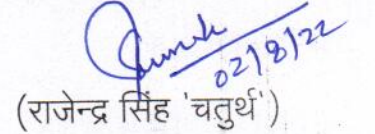 02/8/22
(राजेन्द्र सिंह 'चतुर्थ')